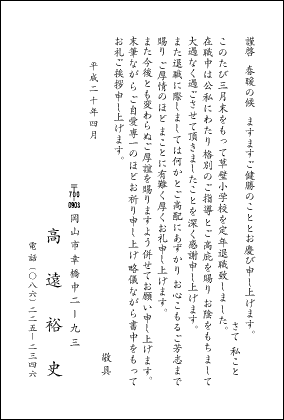 謹啓 春暖の候 ますますご健勝のこととお慶び申し上げます。
さて 私こと
このたび三月末をもって草壁小学校を定年退職致しました。
在職中は公私にわたり 格別のご指導とご高庇を賜り お陰をもちまして
大過なく過ごさせて頂きましたことを深く感謝申し上げます。
また退職に際しましては何かとご高配にあずかり お心こもるご芳志まで
賜り ご厚情のほどまことに有難く厚くお礼申し上げます。
また今後とも変わらぬご厚誼を賜りますよう併せてお願い申し上げます。
末筆ながらご自愛専一のほどお祈り申し上げ 略儀ながら書中をもって
お礼ご挨拶申し上げます。
敬具
平成二十年四月
〒700-0903
岡山市幸橋中二―九三
高遠裕史
電話(〇八六)二二五―二三四六